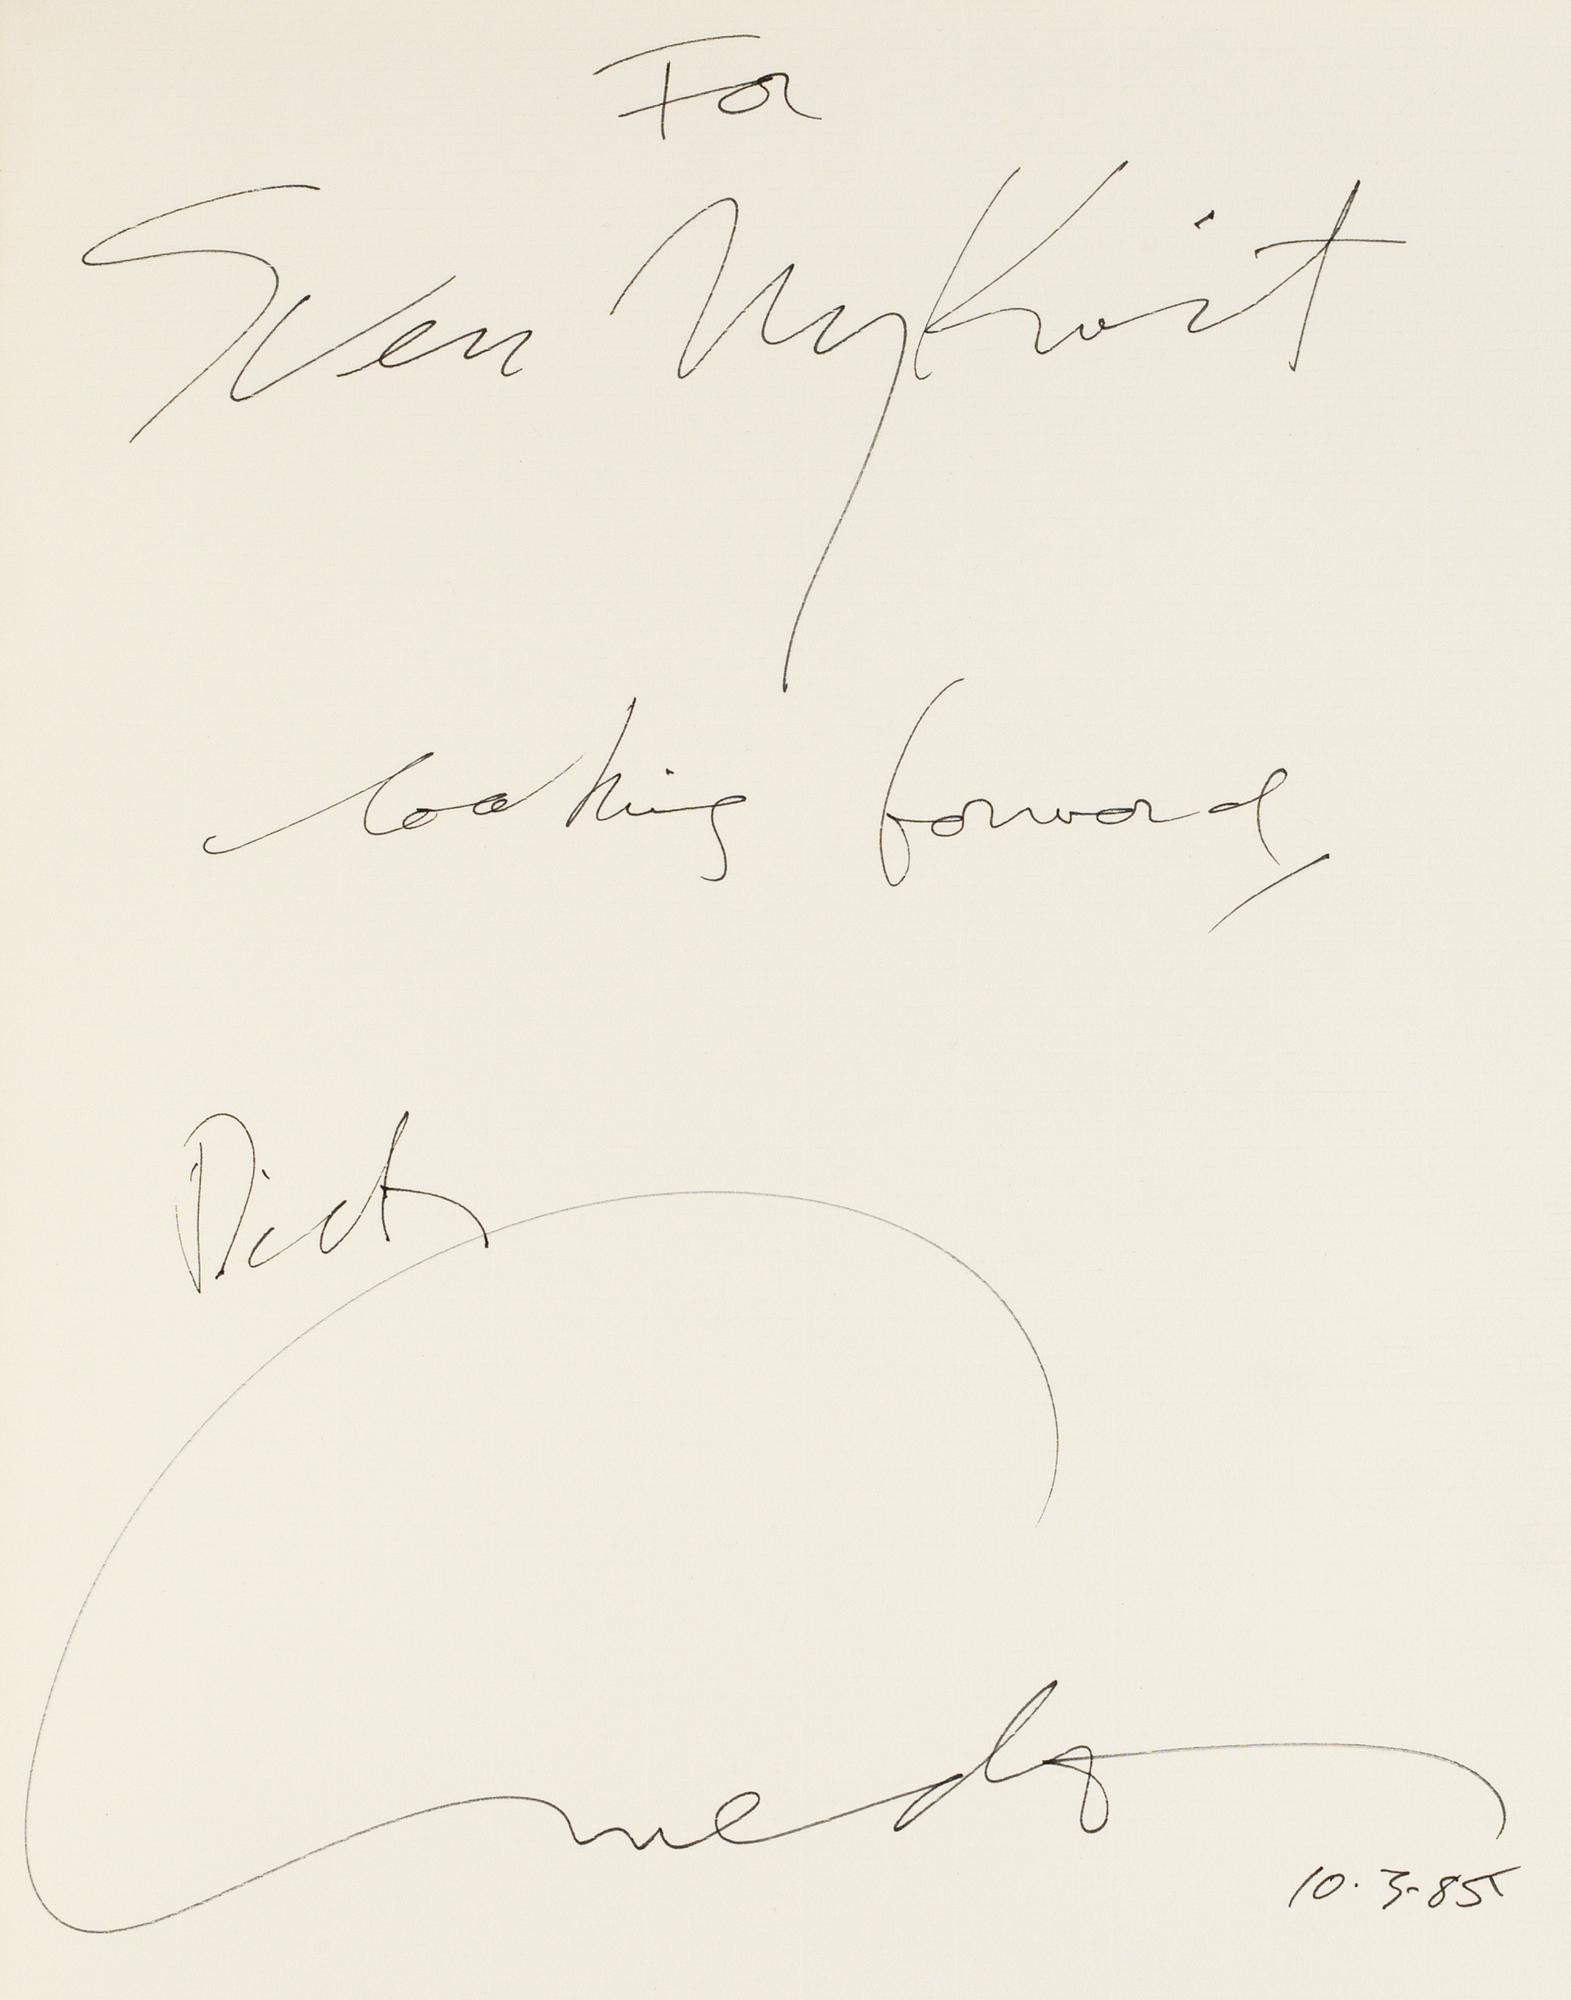 For
Sven Nykvist
looking forward,
Dick
Avedon
10·3-85